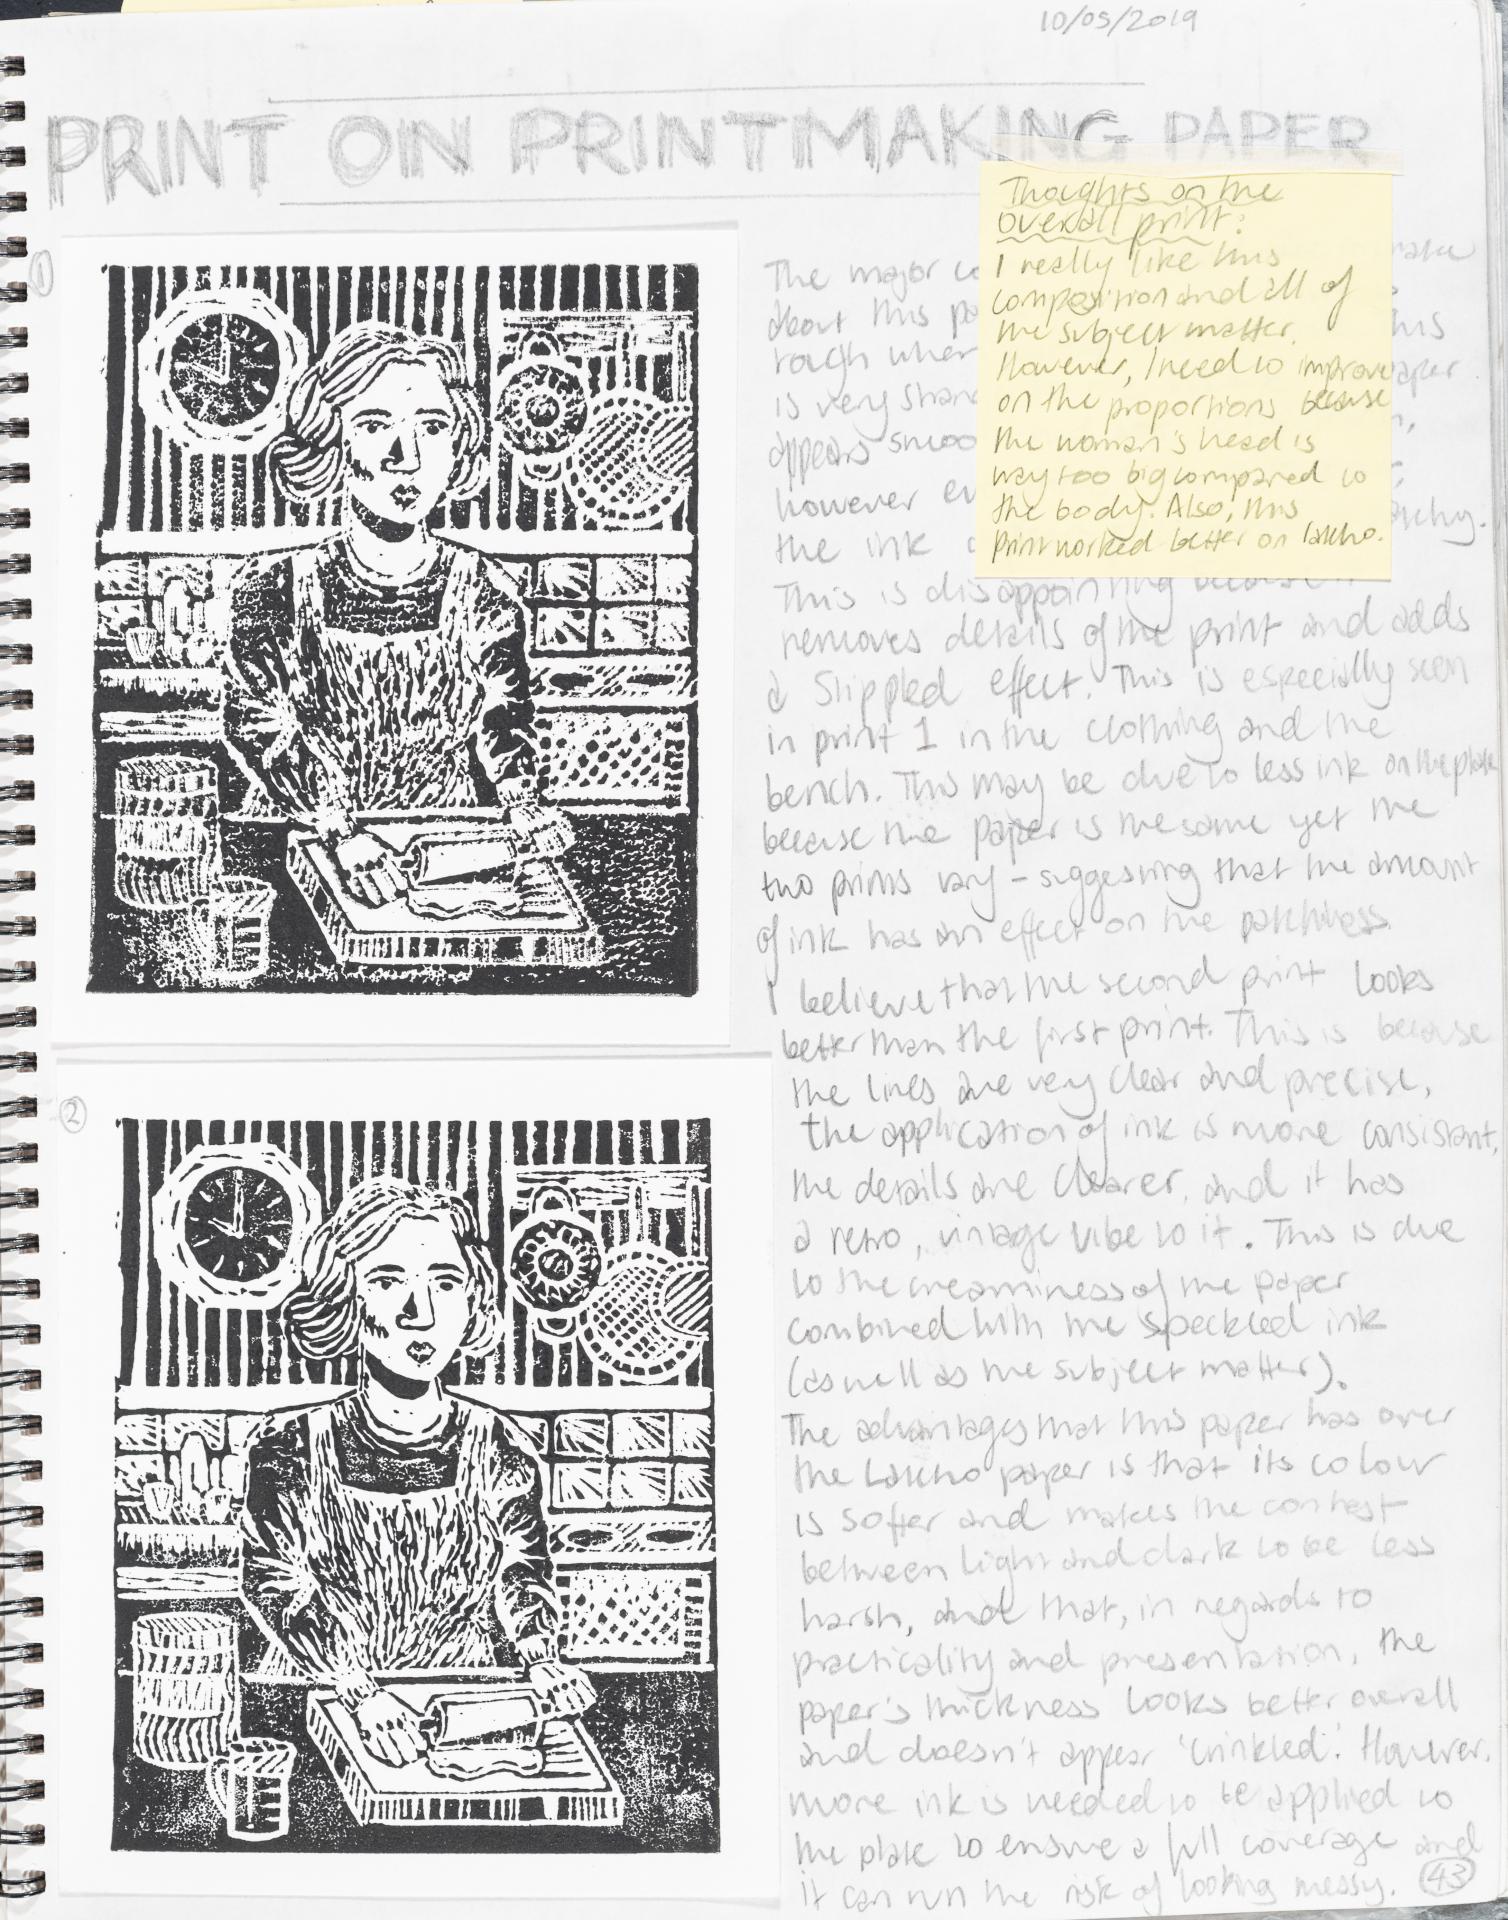 10/05/2019
PRINT ON PRINTMAKING PAPER
1
Thoughts on the
overall print:
I really like this
composition and all of
the subject matter.
However, I need to improve
on the proportions because
the woman's head is
way too big compared to
the body. Also, this
print worked better on lakho.
The major
about this
rough when
is very
appears
however
the ink
This is disappointing because it
removes details of the print and adds
a Stippled effect. This is especially seen
in print 1 in the clothing and the
bench. This may be due to less ink on the plate
because the paper is the same yet the
two prints vary - suggesting that the amount
of ink has an effect on the patchiness.
I believe that the second print looks
better than the first print. This is because
the lines are very clear and precise,
the application of ink is more consistant,
the details are clearer, and it has
a retro, vintage vibe to it. This is due
to the creaminess of the paper
combined with the speckled ink
(as well as the subject matter).
The advantages that this paper has over
the Lakho paper is that its colour
is softer and makes the contrast
between light and dark to be less
harsh, and that, in regards to
practicality and presentation, the
paper's thickness looks better overall
and doesn't appear 'crinkled'. However,
more ink is needed to be applied to
the plate to ensure a full coverage and
it can run the risk of looking messy.
2
43